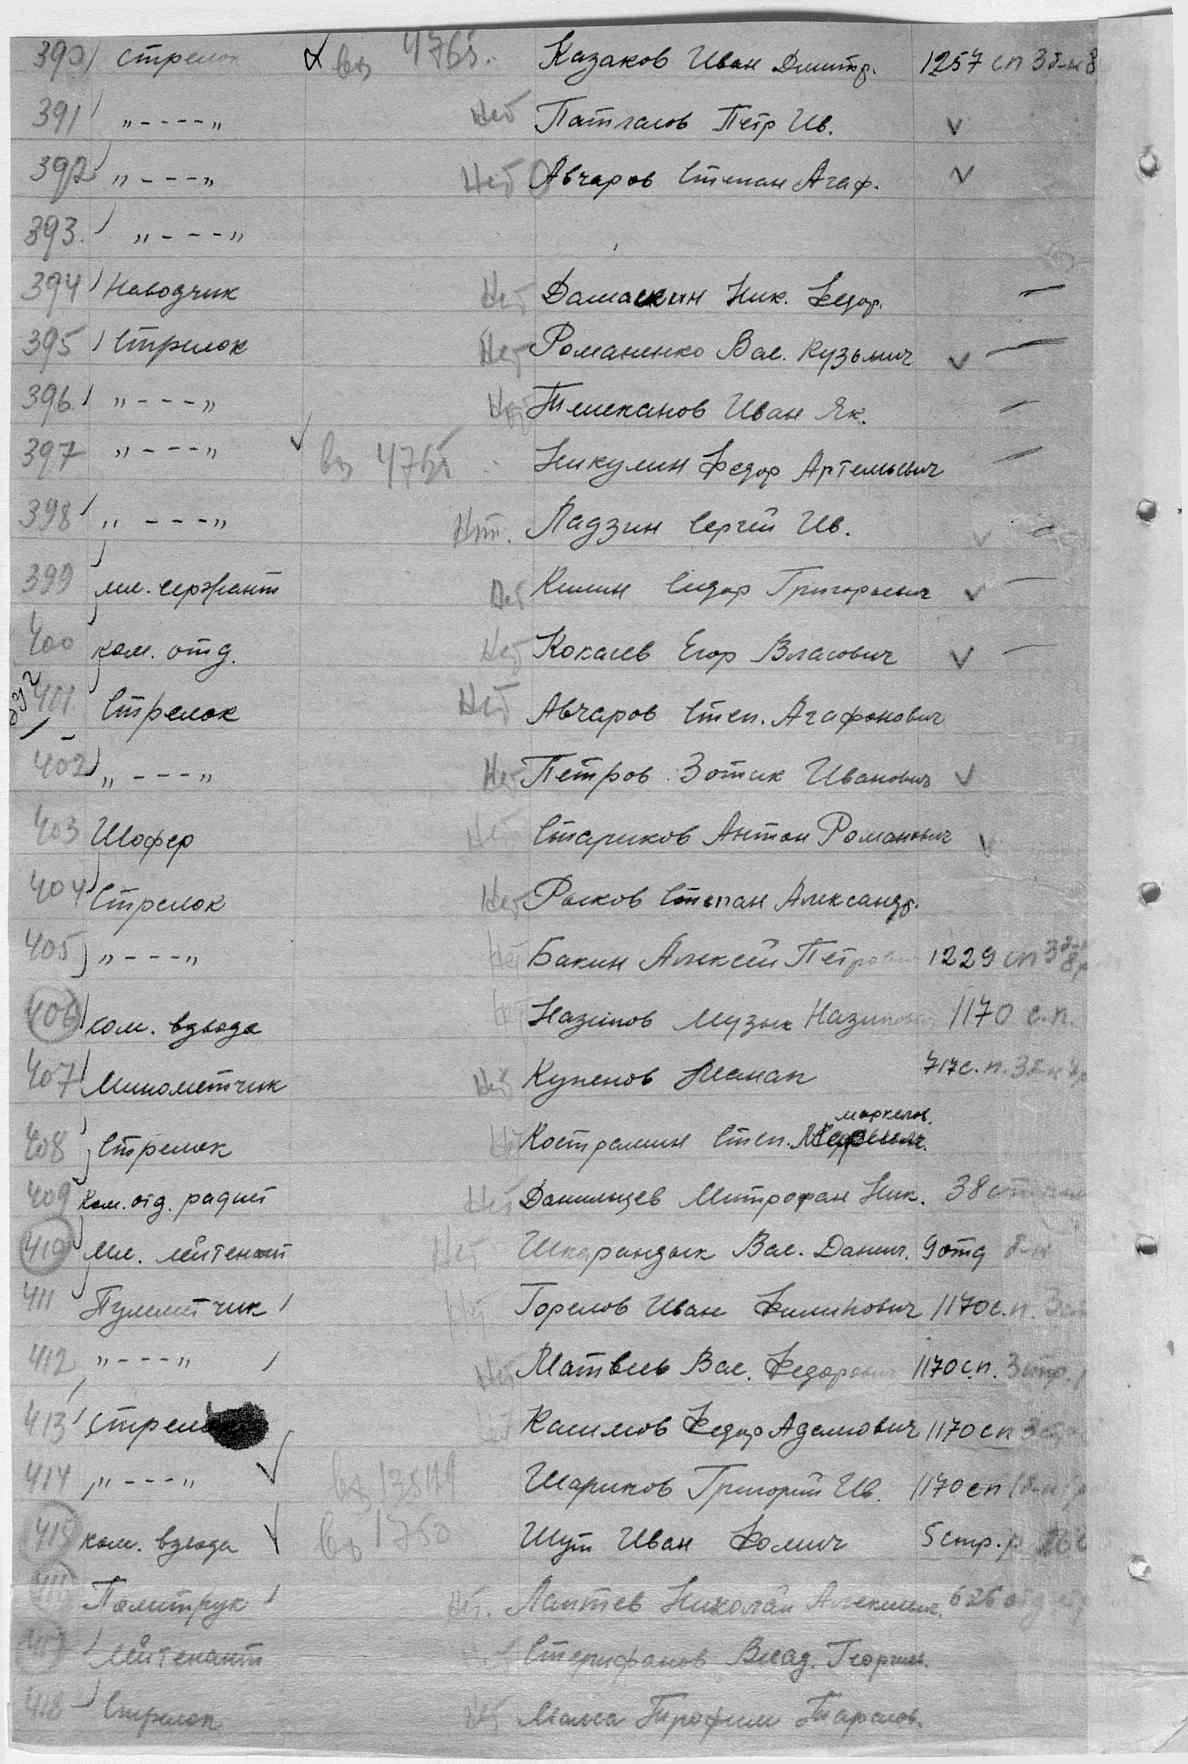 390 Стрелок вз 4765. Казаков Иван Дмитр. 1257 сп 3 б-н 8
391 „----„ Нет Патласов Петр Ив.
392 „---„ Нет Авчаров Степан Агаф.
393. „---„
394 Наводчик Нет Дамаскин Ник. Федор.
395 Стрелок Нет Романенко Вас. Кузьмич
396. „---„ Нет Иван Як.
397 „---„ вз 4765 Никулин Федор Артемьевич
398 „---„ Нет. Ладзин Сергей Ив.
399 мл. сержант Нет Килин Сидор Григорьевич
400 ком. отд. Нет Кокасев Егор Власович
401 Стрелок Нет Авчаров Степ. Агафонович
402 „---„ Нет Петров Зотик Иванович
403 Шофер Нет Стариков Антон Романович
404 Стрелок Нет Рысков Степан Александр.
405 „---„ Нет Бакин Алексей Петрович 1229 сп 3 б-н 8
406 ком. взвода Назипов Музык 1170 с.п.
407 Минометчик Нет Купенов 717 с.п. 3 б-н
маркелов.
408 Стрелок Нет Костромин Степ.
409 Ком. отд. радист Нет Данильцев Митрофан Ник. 38
410 Мл. лейтенант Нет Шкарандык Вас. Данил. 9 отд б-н
411 Пулеметчик Нет Горелов Иван Филипович 1170 с.п. 3
412 „---„ Нет Матвеев Вас. Федорович 1170 с.п. 3 стр.
413 Стрел Нет Касимов Федор Адамович 1170 сп
414 „---„ вз Шариков Григорий Ив. 1170 сп
415 ком. взвода вз 1750 Шут Иван Фомич 5 стр. р
416 Политрук Нет. Лаптев Николай 626
417 Лейтенант Влад. Георгиев.
418 Стрелок Нет Трофим Тарасов.